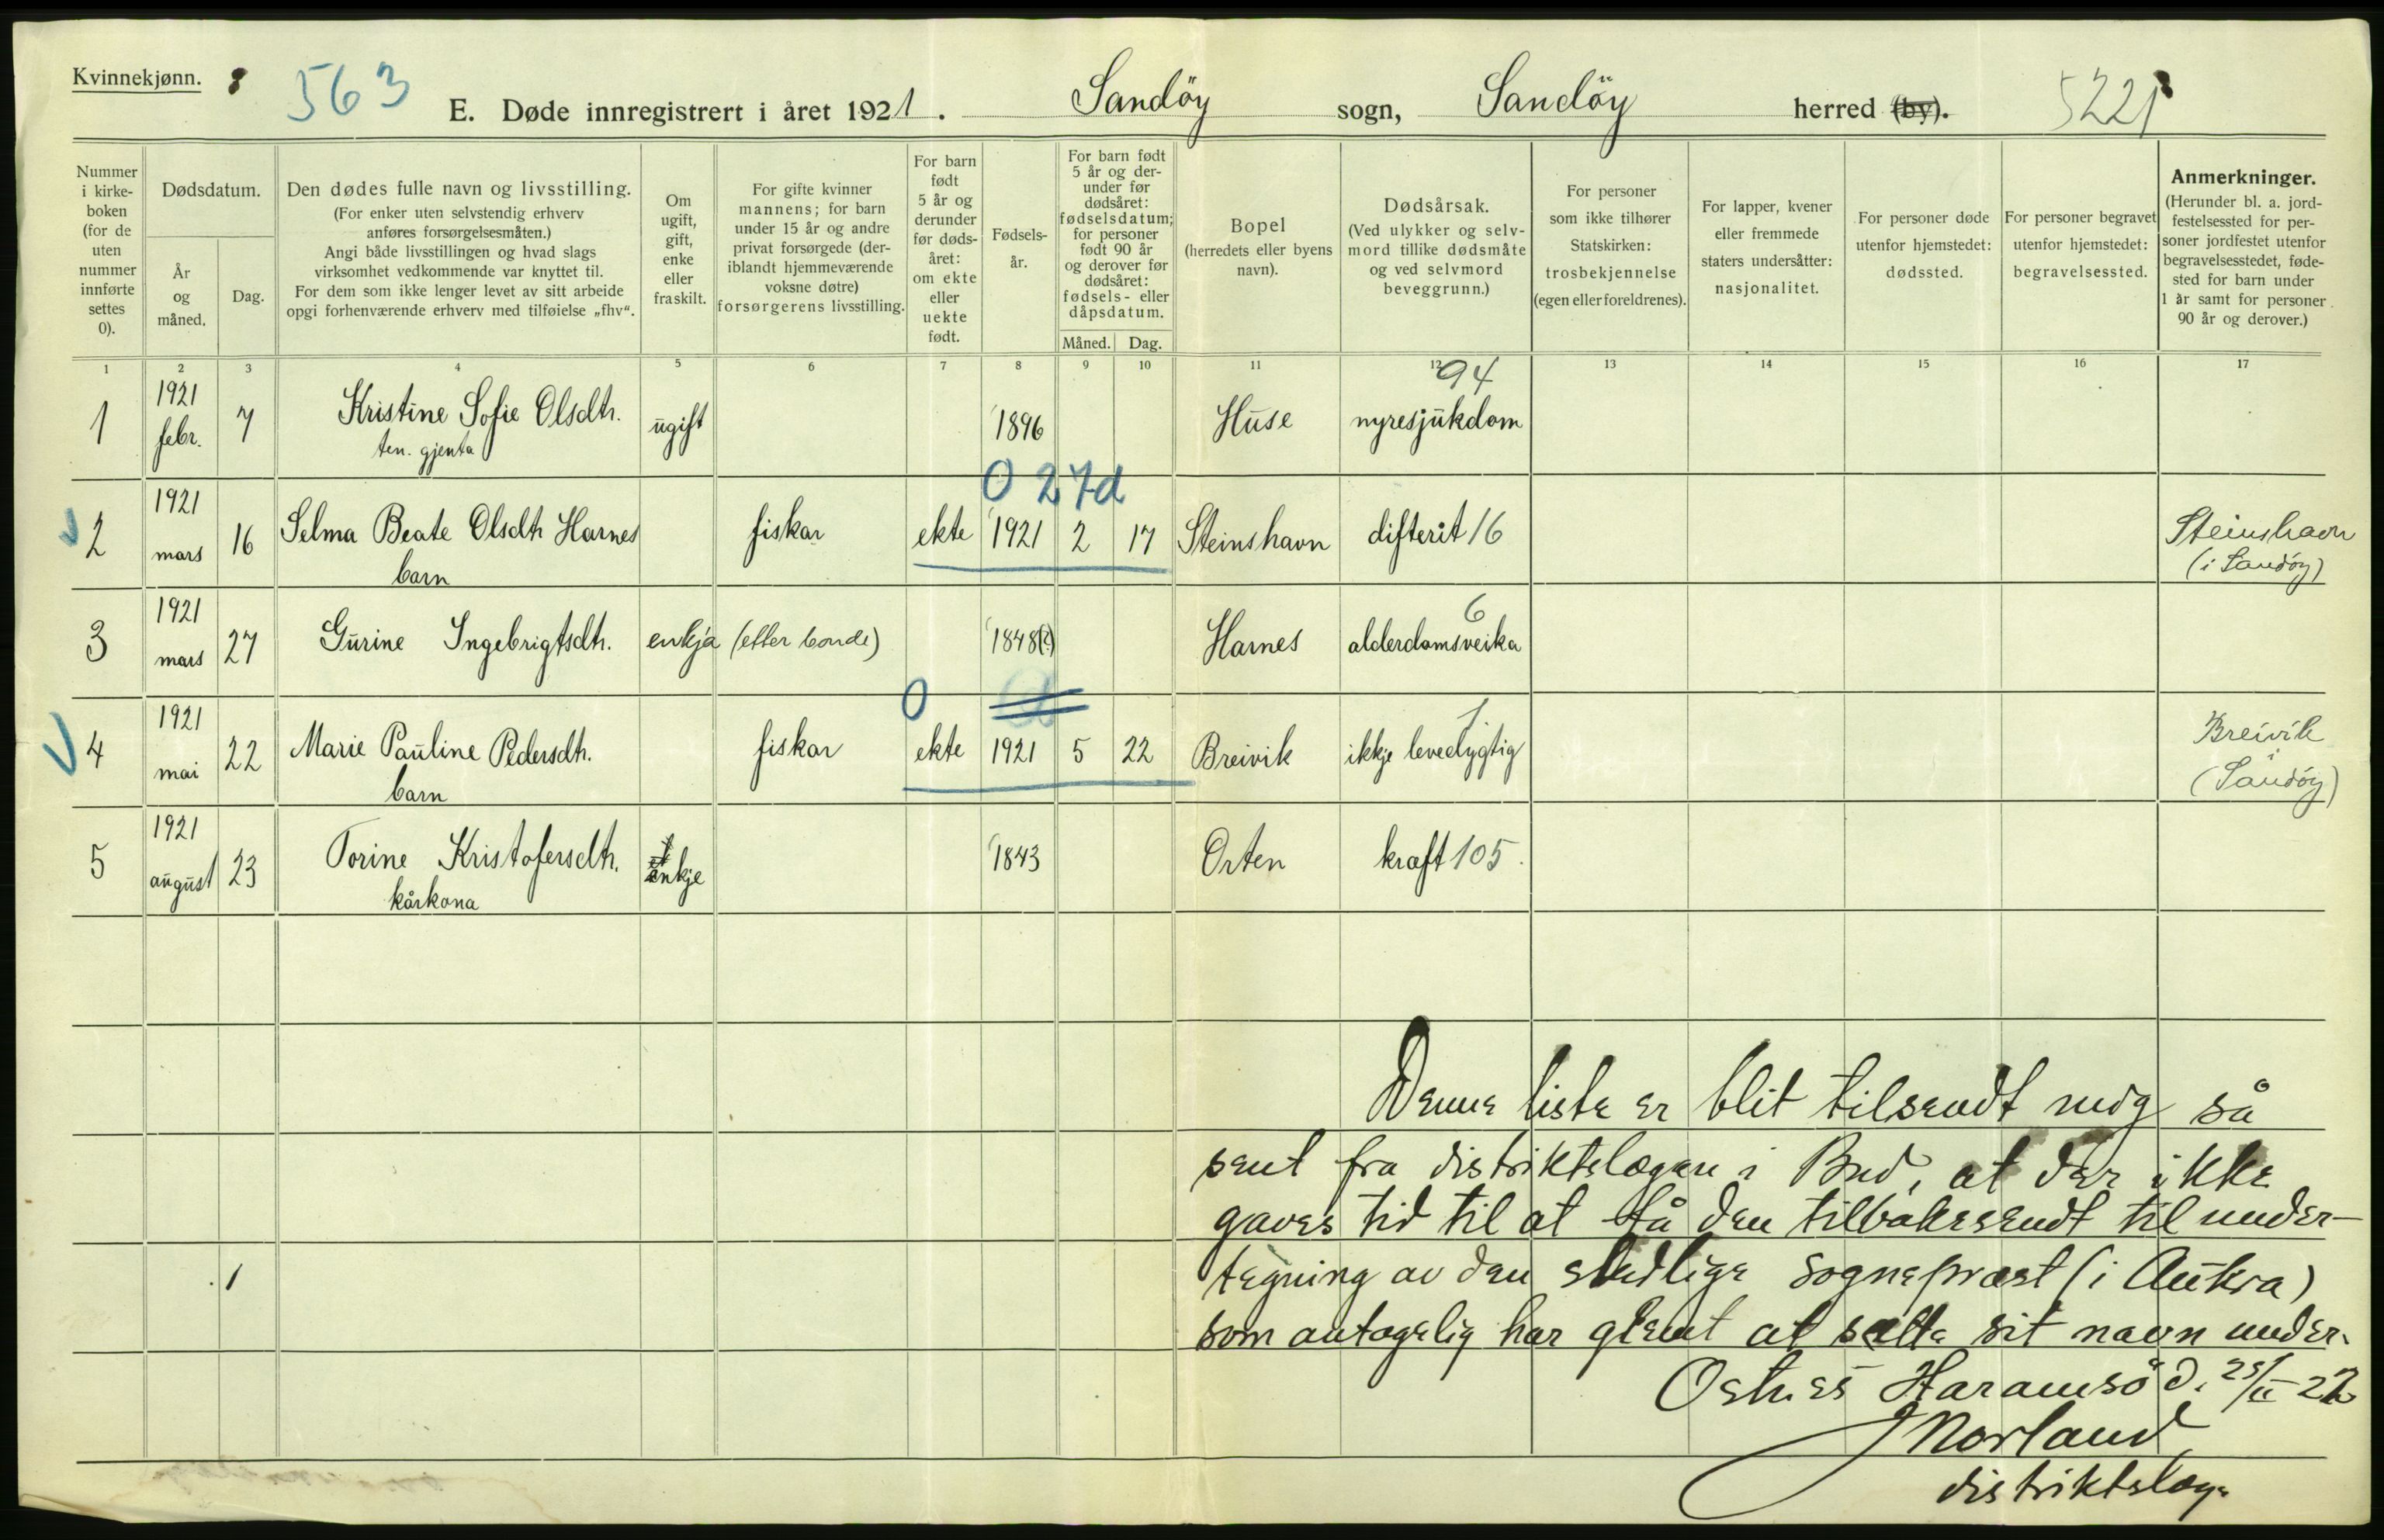 Kvinnekjønn. 8 563
E. Døde innregistrert i året 1921. Sandöy sogn, Sandöy herred (by). 5221
Nummer i kirke-boken (for de uten nummer innførte settes 0).
Dødsdatum.
År og måned.
Dag.
Den dødes fulle navn og livsstilling.
(For enker uten selvstendig erhverv
anføres forsørgelsesmåten.)
Angi både livsstillingen og hvad slags
virksomhet vedkommende var knyttet til.
For dem som ikke lenger levet av sitt arbeide
opgi forhenværende erhverv med tilføielse „fhv“.
Om
ugift,
gift,
enke
eller
fraskilt.
For gifte kvinner
mannens; for barn
under 15 år og andre
privat forsørgede (der-
iblandt hjemmeværende
voksne døtre)
forsørgerens livsstilling.
For barn
født
5 år og
derunder
før døds-
året:
om ekte
eller
uekte
født.
Fødsels-
år.
For barn født
5 år og der-
under før
dødsåret:
fødselsdatum;
for personer
født 90 år
og derover før
dødsåret:
fødsels- eller
dåpsdatum.
Måned. Dag.
Bopel
(herredets eller byens
navn).
Dødsårsak.
(Ved ulykker og selv-
mord tillike dødsmåte
og ved selvmord
beveggrunn.)
For personer
som ikke tilhører
Statskirken:
trosbekjennelse
(egen eller foreldrenes).
For lapper, kvener
eller fremmede
staters undersåtter:
nasjonalitet.
For personer døde
utenfor hjemstedet:
dødssted.
For personer begravet
utenfor hjemstedet:
begravelsessted.
Anmerkninger.
(Herunder bl. a. jord-
festelsessted for per-
soner jordfestet utenfor
begravelsesstedet, føde-
sted for barn under
1 år samt for personer
90 år og derover.)
1 2 3 4 5 6 7 8 9 10 11 12 13 14 15 16 17
94
1 1921 febr. 7 Kristine Sofie Olsdtr. ugift 1896 Huse nyresjukdom
ten. gjenta
0 27d
2 1921 mars 16 Selma Beate Olsdtr Harnes fiskar ekte 1921 2 17 Steinshavn difterit 16 Steinshavn
barn (i Sandöy)
6
3 1921 mars 27 Gurine Ingebrigtsdtr. enkja (etter bonde) 1848(?) Harnes alderdomsveika
0 1
4 1921 mai 22 Marie Pauline Pedersdtr. fiskar ekte 1921 5 22 Breivik ikkje levedygtig Breivik
barn (Sandöy)
5 1921 august 23 Torine Kristofersdtr. enkje 1843 Orten kræft 105.
kårkona
Denne liste er blit tilsendt mig så
sent fra distriktslægen i Bud, at der ikke
gaves tid til at få den tilbakesendt til under-
tegning av den stedlige sogneprest (i Aukra)
. 1
som antagelig har glemt at sætte sit navn under.
Haramsö d. 25/II-22
J Norland
distriktslæge